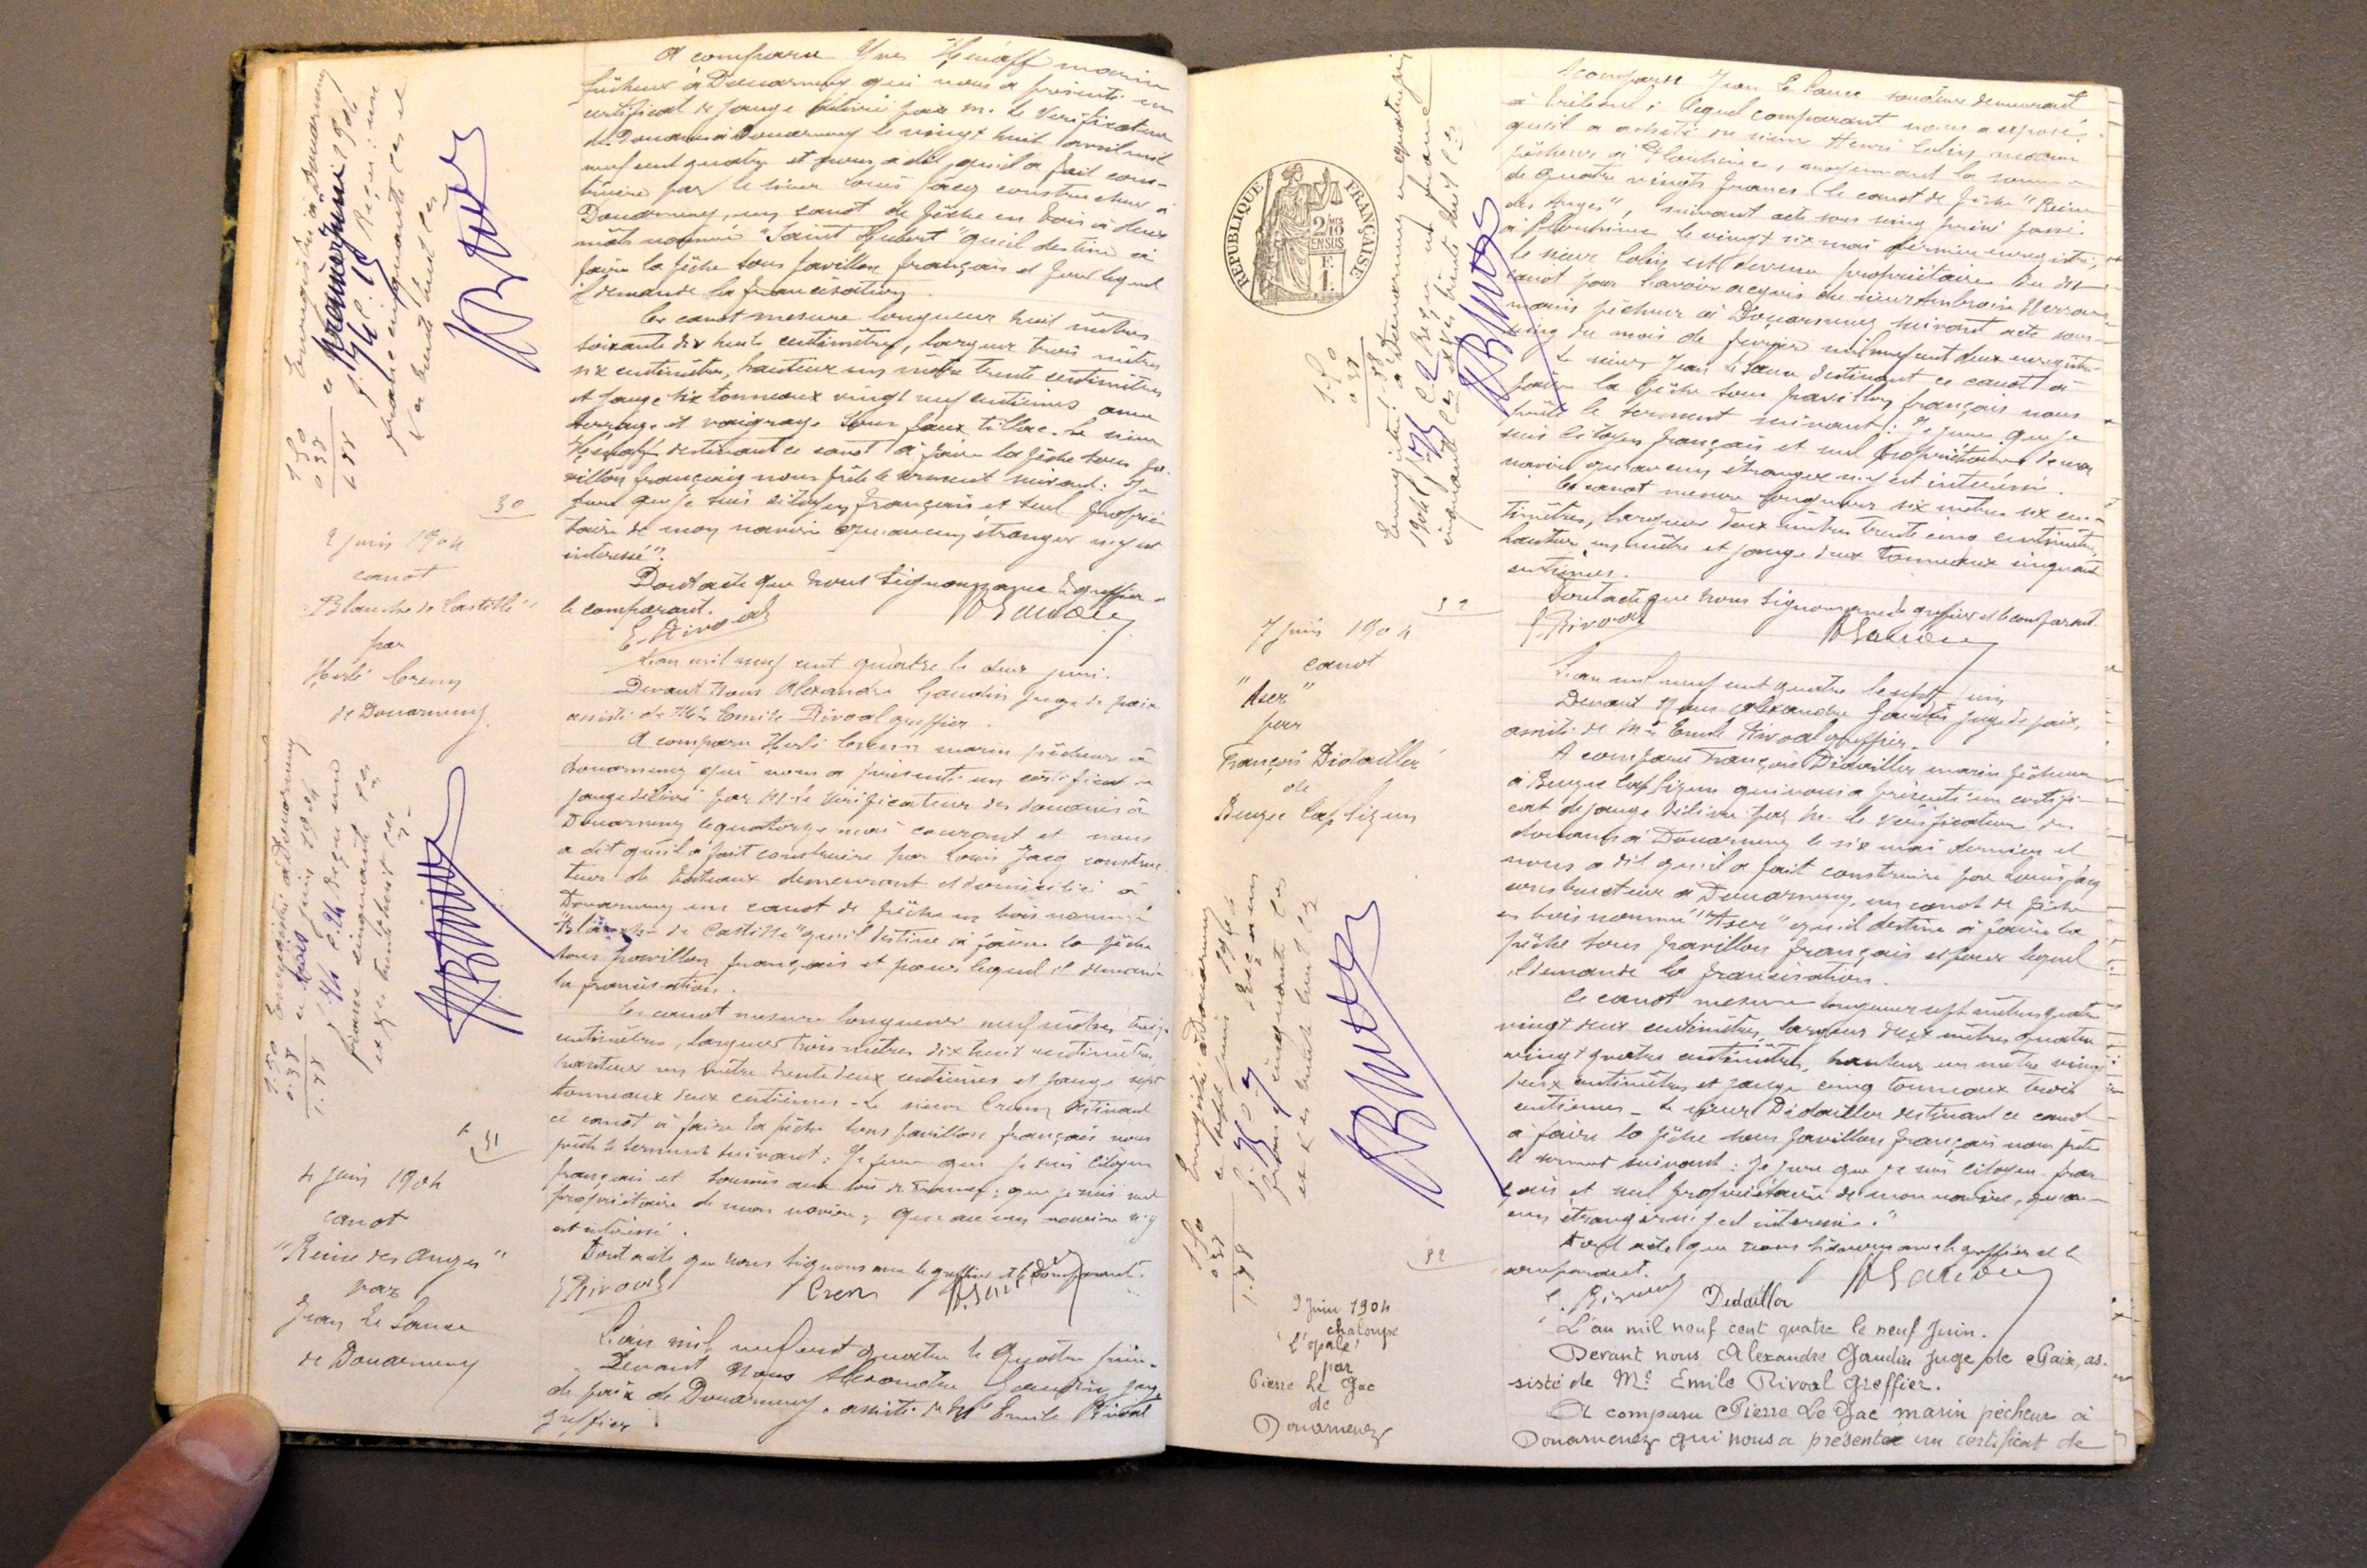 A comparu Yves Hénaff marin
pêcheur à Douarnenez qui nous a présenté un
certificat de jauge délivré par M. le Vérificateur
des Douanes à Douarnenez le vingt huit avril mil
neuf cent quatre et nous a dit qu'il a fait cons-
truire par le sieur Louis Jacq constructeur à
Douarnenez, un canot de pêche en bois à deux
mâts nommé "Saint Hubert" qu'il destine à
faire la pêche sous pavillon français et pour lequel
il demande la francisation.
Ce canot mesure longueur huit mètres
soixante dix huit centimètres, largeur trois mètres
six centimètres, hauteur un mètre trente centimètres
et jauge six tonneaux vingt neuf centièmes
et vaigrage sous faux tillac. Le sieur
Hénaff destinant ce canot à faire la pêche sous pa-
villon français nous prête le serment suivant: Je
jure que je suis citoyen français et seul proprié-
taire de mon navire qu'aucun étranger n'y est
intéressé".
Dont acte que nous signons avec le greffier et
le comparant.
E. Rivoal
L'an mil neuf cent quatre le deux juin.
Devant Nous Alexandre Gaudin Juge de paix
assisté de Me Emile Rivoal greffier.
A comparu Hervé Crenn marin pêcheur à
Douarnenez qui nous a présenté un certificat de
jauge délivré par M. le Vérificateur des douanes à
Douarnenez le quatorze mai courant et nous
a dit qu'il a fait construire par Louis Jacq construc-
teur de bateaux demeurant et domicilié à
Douarnenez un canot de pêche en bois nommé
"Blanche de Castille" qu'il destine à faire la pêche
sous pavillon français et pour lequel il demande
la francisation.
Ce canot mesure longueur neuf mètres treize
centimètres, largeur trois mètres dix huit centimètres,
hauteur un mètre trente deux centièmes et jauge sept
tonneaux deux centièmes. Le sieur Crenn destinant
ce canot à faire la pêche sous pavillon français nous
prête le serment suivant: Je jure que je suis citoyen
français et soumis aux lois de France; que je suis seul
propriétaire de mon navire, que aucun n'y
est intéressé.
Dont acte que nous signons avec le greffier et le comparant.
E Rivoal Crenn
L'an mil neuf cent quatre le quatre juin.
Devant Nous Alexandre Gaudin juge
de paix de Douarnenez, assisté de Me Emile Rivoal
greffier.
Enregistré à Douarnenez
ce premier juin 1904
f. 74 c. 19 Reçu: un
franc cinquante ces et
ces trente huit ces
30
2 juin 1904
canot
"Blanche de Castille"
par
Hervé Crenn
de Douarnenez
Enregistré à Douarnenez
ce trois juin 1904
f. 74 c. 24 Reçu un
franc cinquante ces
et Xes trente huit ces
1.50
0.38
1.88
31
4 juin 1904
canot
"Reine des Anges"
par
Jean Le Sauce
de Douarnenez
A comparu Jean Le Sauce demeurant
à Tréboul; lequel comparant nous a exposé
qu'il a acheté du sieur Henri Colin marin
pêcheur à Plouhinec, moyennant la somme
de quatre vingts francs le canot de pêche "Reine
des Anges", suivant acte sous seing privé passé
à Plouhinec le vingt six mai dernier enregistré,
le sieur Colin est devenu propriétaire du dit
canot pour l'avoir acquis du sieur Ambroise
marin pêcheur à Douarnenez suivant acte sous
seing du mois de février mil neuf cent deux enregistré.
Le sieur Jean Le Sauce destinant ce canot à
faire la pêche sous pavillon français nous
prête le serment suivant: "Je jure que je
suis citoyen français et seul propriétaire de mon
navire qu'aucun étranger n'y est intéressé.
Ce canot mesure longueur six mètres six cen-
timètres, largeur deux mètres trente cinq centimètres,
hauteur un mètre et jauge deux tonneaux cinquante
centièmes.
Dont acte que nous signons avec le greffier et le comparant.
E. Rivoal
L'an mil neuf cent quatre le sept juin
Devant Nous Alexandre Gaudin juge de paix,
assisté de Me Emile Rivoal greffier.
A comparu François Didailler marin pêcheur
à Beuzec Cap Sizun qui nous a présenté un certifi-
cat de jauge délivré par M. le Vérificateur des
douanes à Douarnenez le six mai dernier et
nous a dit qu'il a fait construire par Louis Jacq
constructeur à Douarnenez, un canot de pêche
en bois nommé "Aser" qu'il destine à faire la
pêche sous pavillon français et pour lequel
il demande la francisation.
Ce canot mesure longueur sept mètres quatre
vingt deux centimètres, largeur deux mètres quatre
vingt quatre centimètres, hauteur un mètre vingt
deux centimètres et jauge cinq tonneaux trois
centièmes. Le sieur Didailler destinant ce canot
à faire la pêche sous pavillon français nous prête
le serment suivant: Je jure que je suis citoyen fran-
çais et seul propriétaire de mon navire, qu'au-
cun étranger n'y est intéressé."
Dont acte que nous signons avec le greffier et le
comparant.
E. Rivoal Didailler
L'an mil neuf cent quatre le neuf Juin.
Devant nous Alexandre Gaudin Juge de Paix, as-
sisté de Me Emile Rivoal Greffier.
A comparu Pierre Le Gac marin pêcheur à
Douarnenez qui nous a présenté un certificat de
REPUBLIQUE FRANÇAISE
2/10 EN SUS
F. 1.
Enregistré à Douarnenez
1904
1.50
0.38
1.88
32
7 juin 1904
canot
"Aser"
par
François Didailler
de
Beuzec Cap Sizun
Enregistré à Douarnenez
franc cinquante ces
et Xes trente huit ces
1.50
0.38
1.88
9 Juin 1904
chaloupe
"L'opale"
par
Pierre Le Gac
de
Douarnenez